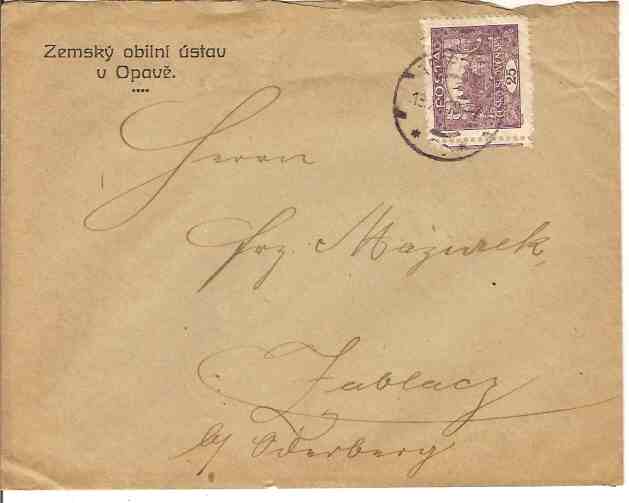 Zemský obilní ústav
v Opavě.
POŠTA
ČESKO-SLOVENSKÁ
25
Herrn
Frz. Mazurek
Zablacz
b/ Oderberg